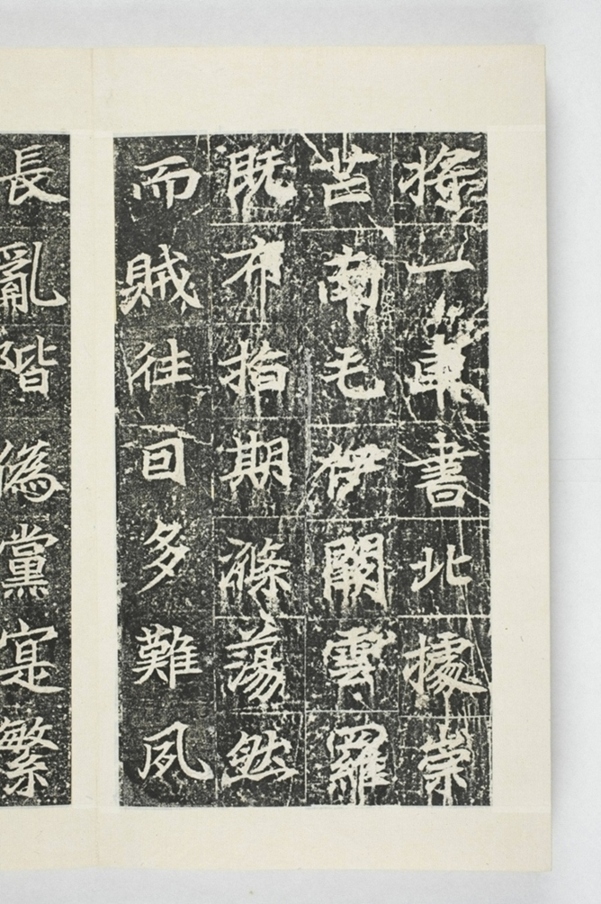 將一車書北據崇
芒南屯伊闕雲羅
既布指期滌蕩然
而賊往囙多難夙
長亂階偽黨寔繁